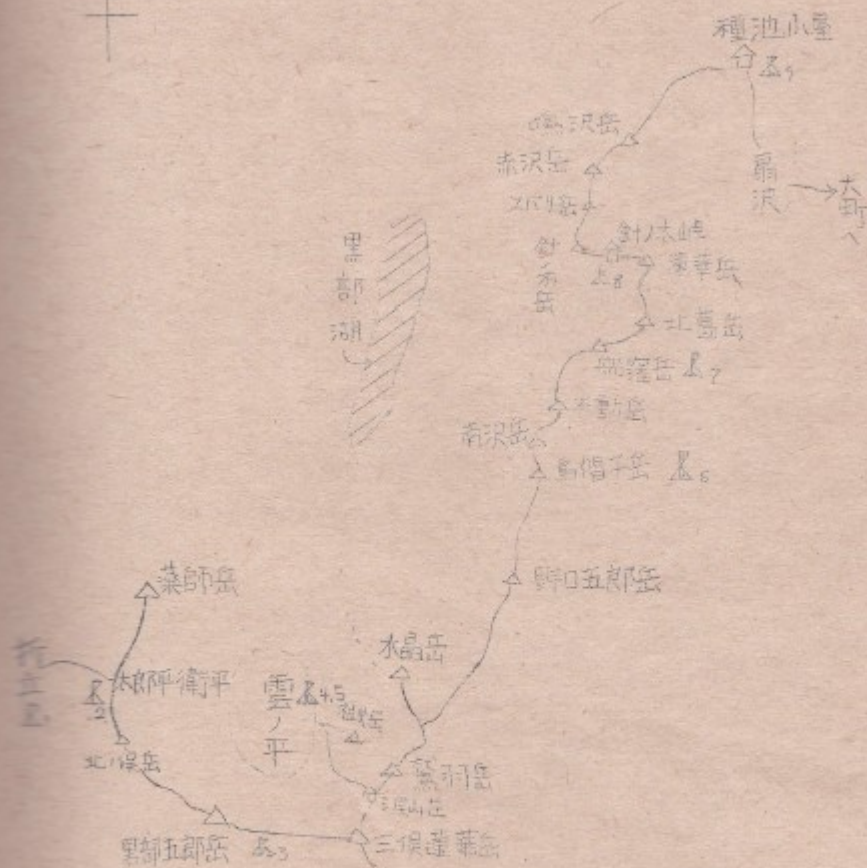 種池小屋
9
鳴沢岳
赤沢岳
スバリ岳
扇沢
大町へ
針ノ木峠
針ノ木岳
8
蓮華岳
黒部湖
北葛岳
船窪岳 7
不動岳
南沢岳
烏帽子岳 6
野口五郎岳
薬師岳
水晶岳
折立
太郎兵衛平
2
雲ノ平
4.5
祖父岳
北ノ俣岳
鷲羽岳
三俣山荘
黒部五郎岳 3
三俣蓮華岳